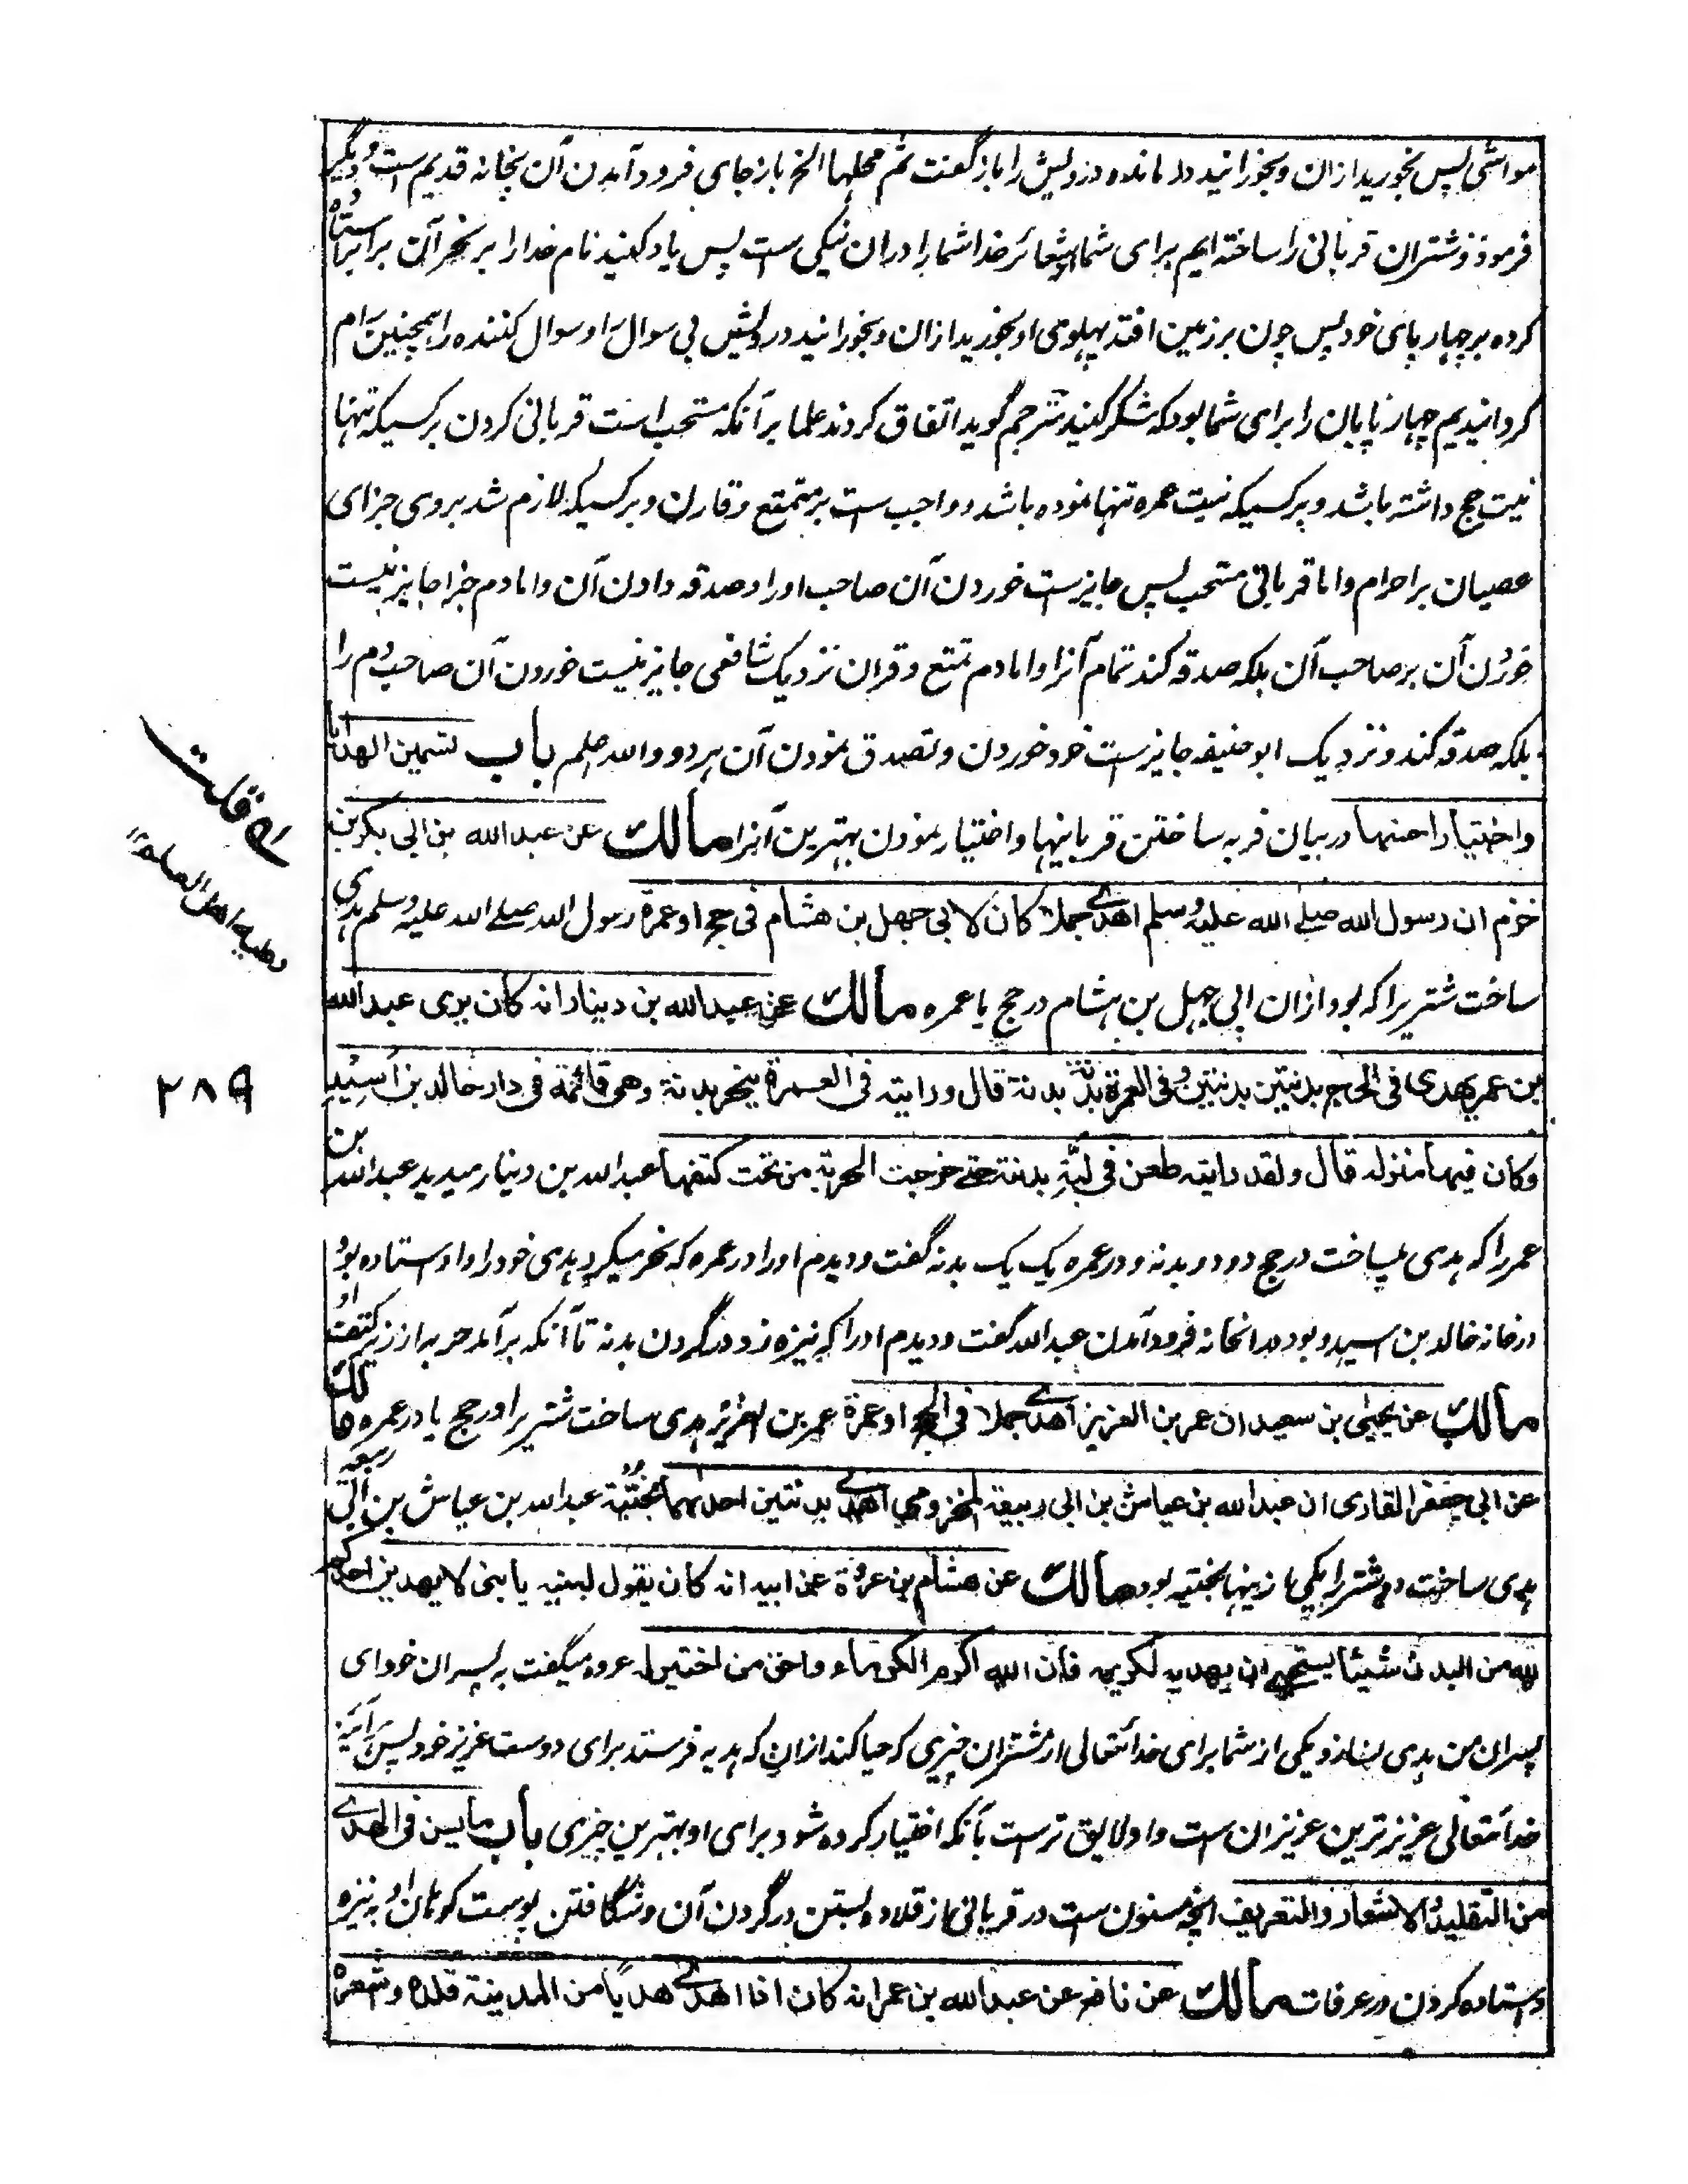 مواشی پس بخورید ازان و بخورانید درمانده درویش را باز گفت ثم محلها الخ باز جای فرود آمدن آن بخانه قدیم است و دیگر
فرمود و شتران قربانی را ساخته ایم برای شما از شعائر خدا شما را دران نیکی ست پس یاد کنید نام خدا را بر نحر آن برابر استاده
کرده بر چهار پای خود پس چون بر زمین افتد پهلوی او بخورید ازان و بخورانید درویش بی سوال را و سوال کننده را همچنین رام
گردانیدیم چهارپایان را برای شما بود که شکر کنید مترجم گوید اتفاق کردند علما بر آنکه مستحب است قربانی کردن بر کسیکه تنها
نیت حج داشته باشد و بر کسیکه نیت عمره تنها نموده باشد و واجب ست بر متمتع و قارن و بر کسیکه لازم شد بر وی جزای
عصیان بر احرام و اما قربانی مستحب پس جایز ست خوردن آن صاحب او را و صدقه دادن آن و اما دم جزا جایز نیست
خوردن آن بر صاحب آن بلکه صدقه کند تمام آنرا و اما دم تمتع و قران نزدیک شافعی جایز نیست خوردن آن صاحب دم را
بلکه صدقه کند و نزدیک ابو حنیفه جایز ست خود خوردن و تصدق نمودن آن هر دو والله علم باب تسمین الهدایا
واختیار احسنها در بیان فربه ساختن قربانیها و اختیار نمودن بهترین آنرا مالک عن عبد الله بن ابی بکر بن
حزم ان رسول الله صلے الله علیه وسلم اهدے جملا کان لابی جهل بن هشام فی حج او عمرة رسول الله صلے الله علیه وسلم هدی
ساخت شتریرا که بود ازان ابی جهل بن هشام در حج یا عمره مالک عن عبد الله بن دینار انه کان یری عبد الله
بن عمر یهدی فی الحج بدنتین بدنتین وفی العمرة بدنة بدنة قال ورایته فی العمرة ینحر بدنة وهی قائمة فی دار خالد بن اَسِیْدِ
وکان فیها منزله قال ولقد رایته طعن فی لبّةِ بدنته حتے خرجت الحربة من تحت کتفها عبد الله بن دینار میدید عبد الله بن
عمر را که هدی میساخت در حج دو دو بدنه و در عمره یک یک بدنه گفت و دیدم او را در عمره که نحر میکرد هدی خود را و او ستاده بود
در خانه خالد بن اسید و بود در انخانه فرود آمدن عبد الله گفت و دیدم او را که نیزه زد در گردن بدنه تا آنکه برآمد حربه از زیر کتف او
مالک عن یحیی بن سعید ان عمر بن العزیز اهدے جملا فی الحج او عمرة عمر بن العزیز هدی ساخت شتریرا در حج یا در عمره مالک
عن ابی جعفر القاری ان عبد الله بن عیاش بن ابی ربیعة المخزومی اهدے بدنتین احداهما بُختیّة عبد الله بن عیاش بن ابی ربیعه
هدی ساخت دو شتر را یکی ازینها بختیه بود مالک عن هشام بن عروة عن ابیه انه کان یقول لبنیه یا بنی لا یهدین احدکم
لله من البدن شیئا یستحیی ان یهدیه لکریمه فان الله اکرم الکرماء واحق من اختیر له عروه میگفت به پسران خود ای
پسران من هدی نسازد یکی از شما برای خدا تعالی از شتران چیزی که حیا کند ازان که هدیه فرستد برای دوست عزیز خود پس هر آئینه
خدا تعالی عزیزترین عزیزان ست و او لایق تر ست بآنکه اختیار کرده شود برای او بهترین چیزی باب ما یسن فی الهدے
من التقلید والاشعار والتعریف آنچه مسنون ست در قربانی از قلاده بستن در گردن آن و شگافتن پوست کوهان او به نیزه
و ستاده کردن در عرفات مالک عن نافع عن عبد الله بن عمر انه کان اذا اهدے هدیًا من المدینة قلده واشعره
قلت
اهل العلم
٢٨٩